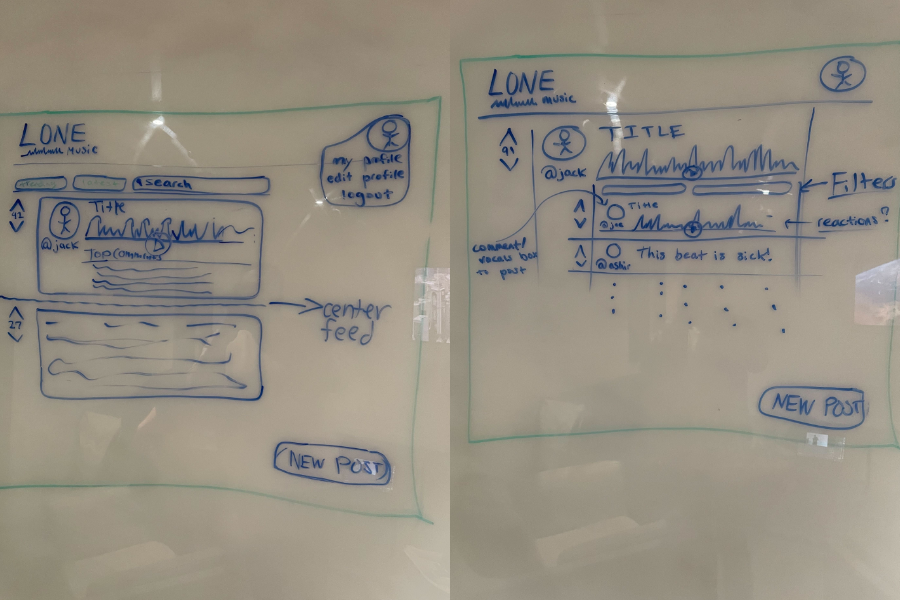 LONE
MUSIC
my profile
edit profile
logout
search
42
Title
@jack
Top Comments
27
center
feed
NEW POST
LONE
MUSIC
91
TITLE
@jack
Filters
Title
@joe
reactions?
comment/
vocals box
to post
This beat is sick!
NEW POST